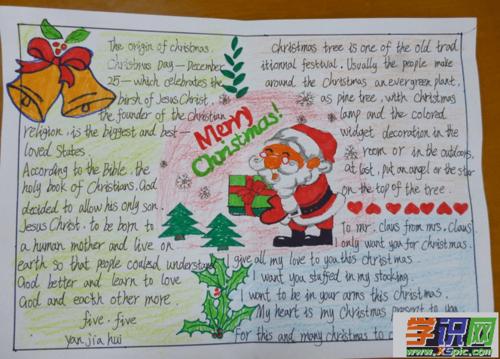 The origin of christmas.
Christmas Day — December
25 — which celebrates the
birsh of Jesus Christ,
the founder of the Christian
religion, is the biggest and best —
loved States.
According to the Bible, the
holy book of Christians, God
decided to allow his only son,
Jesus Christ, to be born to
a human mother and live on
earth so that people couled understand
God better and learn to love
God and eacth other more.
five · five
yan jia hui
Merry
Christmas!
Christmas tree is one of the old trad
itionnal festival. Usually the people make
around the Christmas an evergreen plant,
as pine tree, with Christmas
lamp and the colored
widget decoration in the
room or in the outdoors,
at last, put an angel or the star
on the top of the tree.
To mr. claus from mrs. claus
I only want you for christmas.
I give all my love to you this christmas.
I want you stuffed in my stocking.
I want to be in your arms this christmas.
My heart is my Christmas present to you
For this and many christmas to
学识网
www.xspic.com